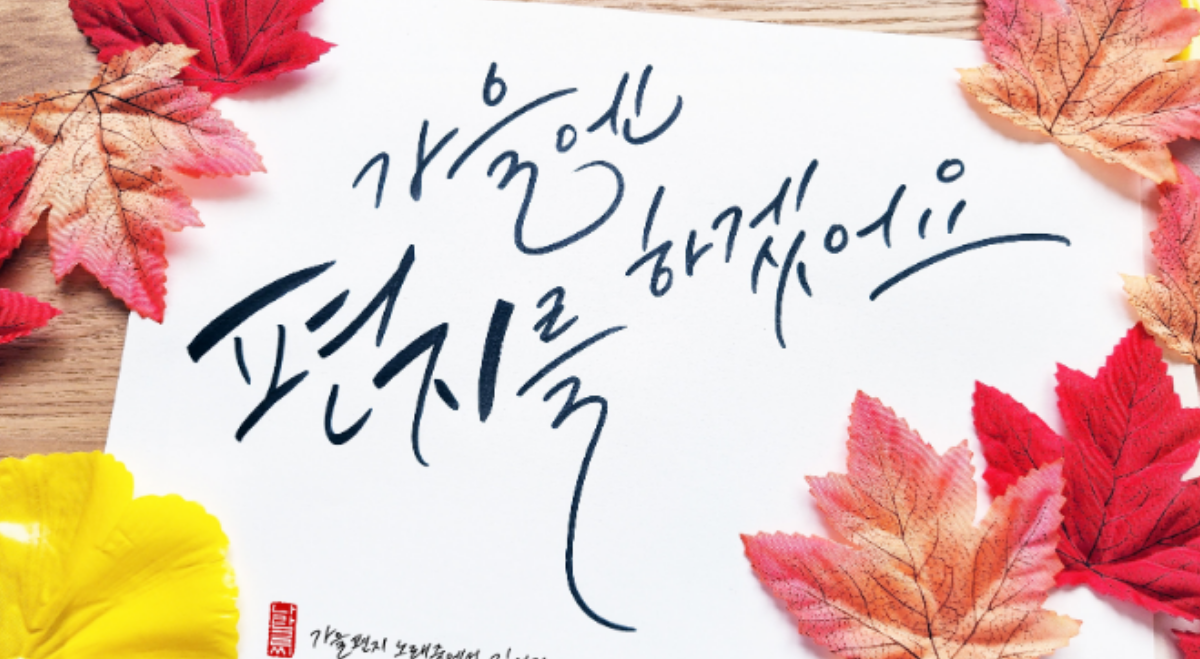 가을엔
편지를 하겠어요
가을편지 노래중에서